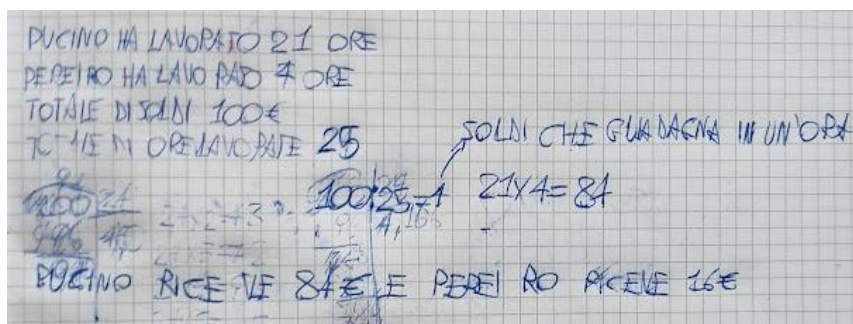 PUCINO HA LAVORATO 21 ORE
PEPEIRO HA LAVORATO 4 ORE
TOTALE DI SOLDI 100€
TOTALE DI ORE LAVORATE 25
SOLDI CHE GUADAGNA IN UN'ORA
100:25=4 21X4=84
PUCINO RICEVE 84€ E PEPEIRO RICEVE 16€